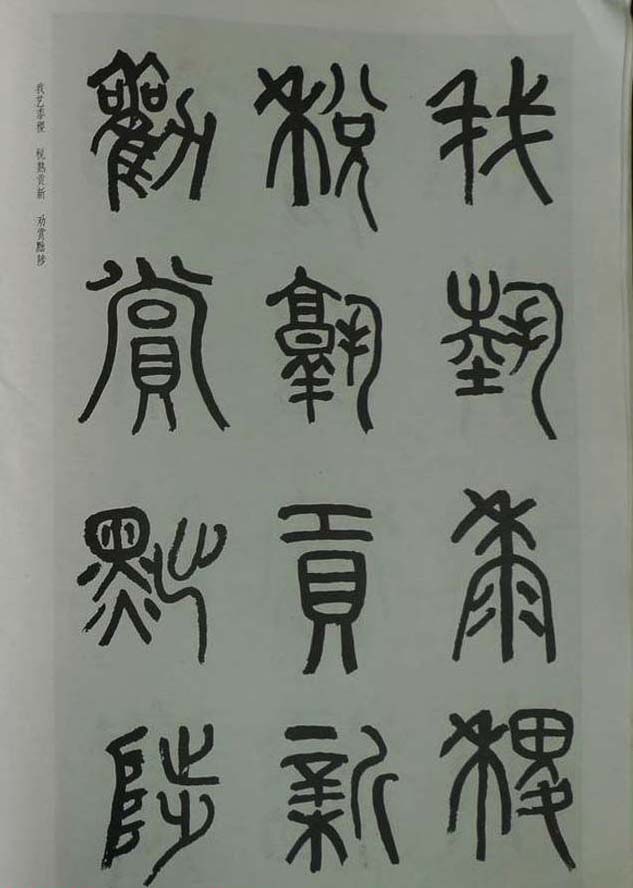 我藝黍稷
稅孰貢新
勸賞黜陟
我艺黍稷 税熟贡新 劝赏黜陟